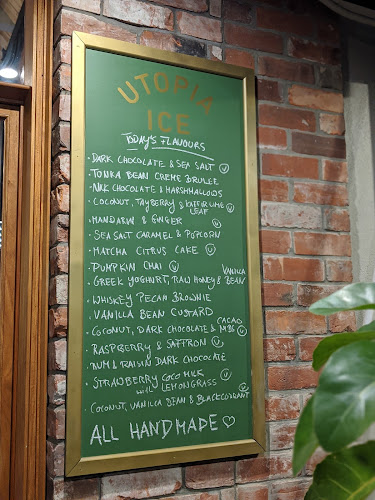 UTOPIA
ICE
TODAY'S FLAVOURS
· DARK CHOCOLATE & SEA SALT Ⓥ
· TONKA BEAN CREME BRULEE
· MILK CHOCOLATE & MARSHMALLOWS
· COCONUT, TAYBERRY & KAFFIR LIME
LEAF Ⓥ
· MANDARIN & GINGER Ⓥ
· SEA SALT CARAMEL & POPCORN
· MATCHA CITRUS CAKE Ⓥ
· PUMPKIN CHAI Ⓥ
VANILLA
· GREEK YOGHURT, RAW HONEY & BEAN
· WHISKEY PECAN BROWNIE
· VANILLA BEAN CUSTARD
CACAO
· COCONUT, DARK CHOCOLATE & NIBS Ⓥ
· RASPBERRY & SAFFRON Ⓥ
· RUM & RAISIN DARK CHOCOLATE
· STRAWBERRY COCO MILK Ⓥ
with LEMONGRASS Ⓥ
· COCONUT, VANILLA BEAN & BLACKCURRANT
ALL HANDMADE ♡